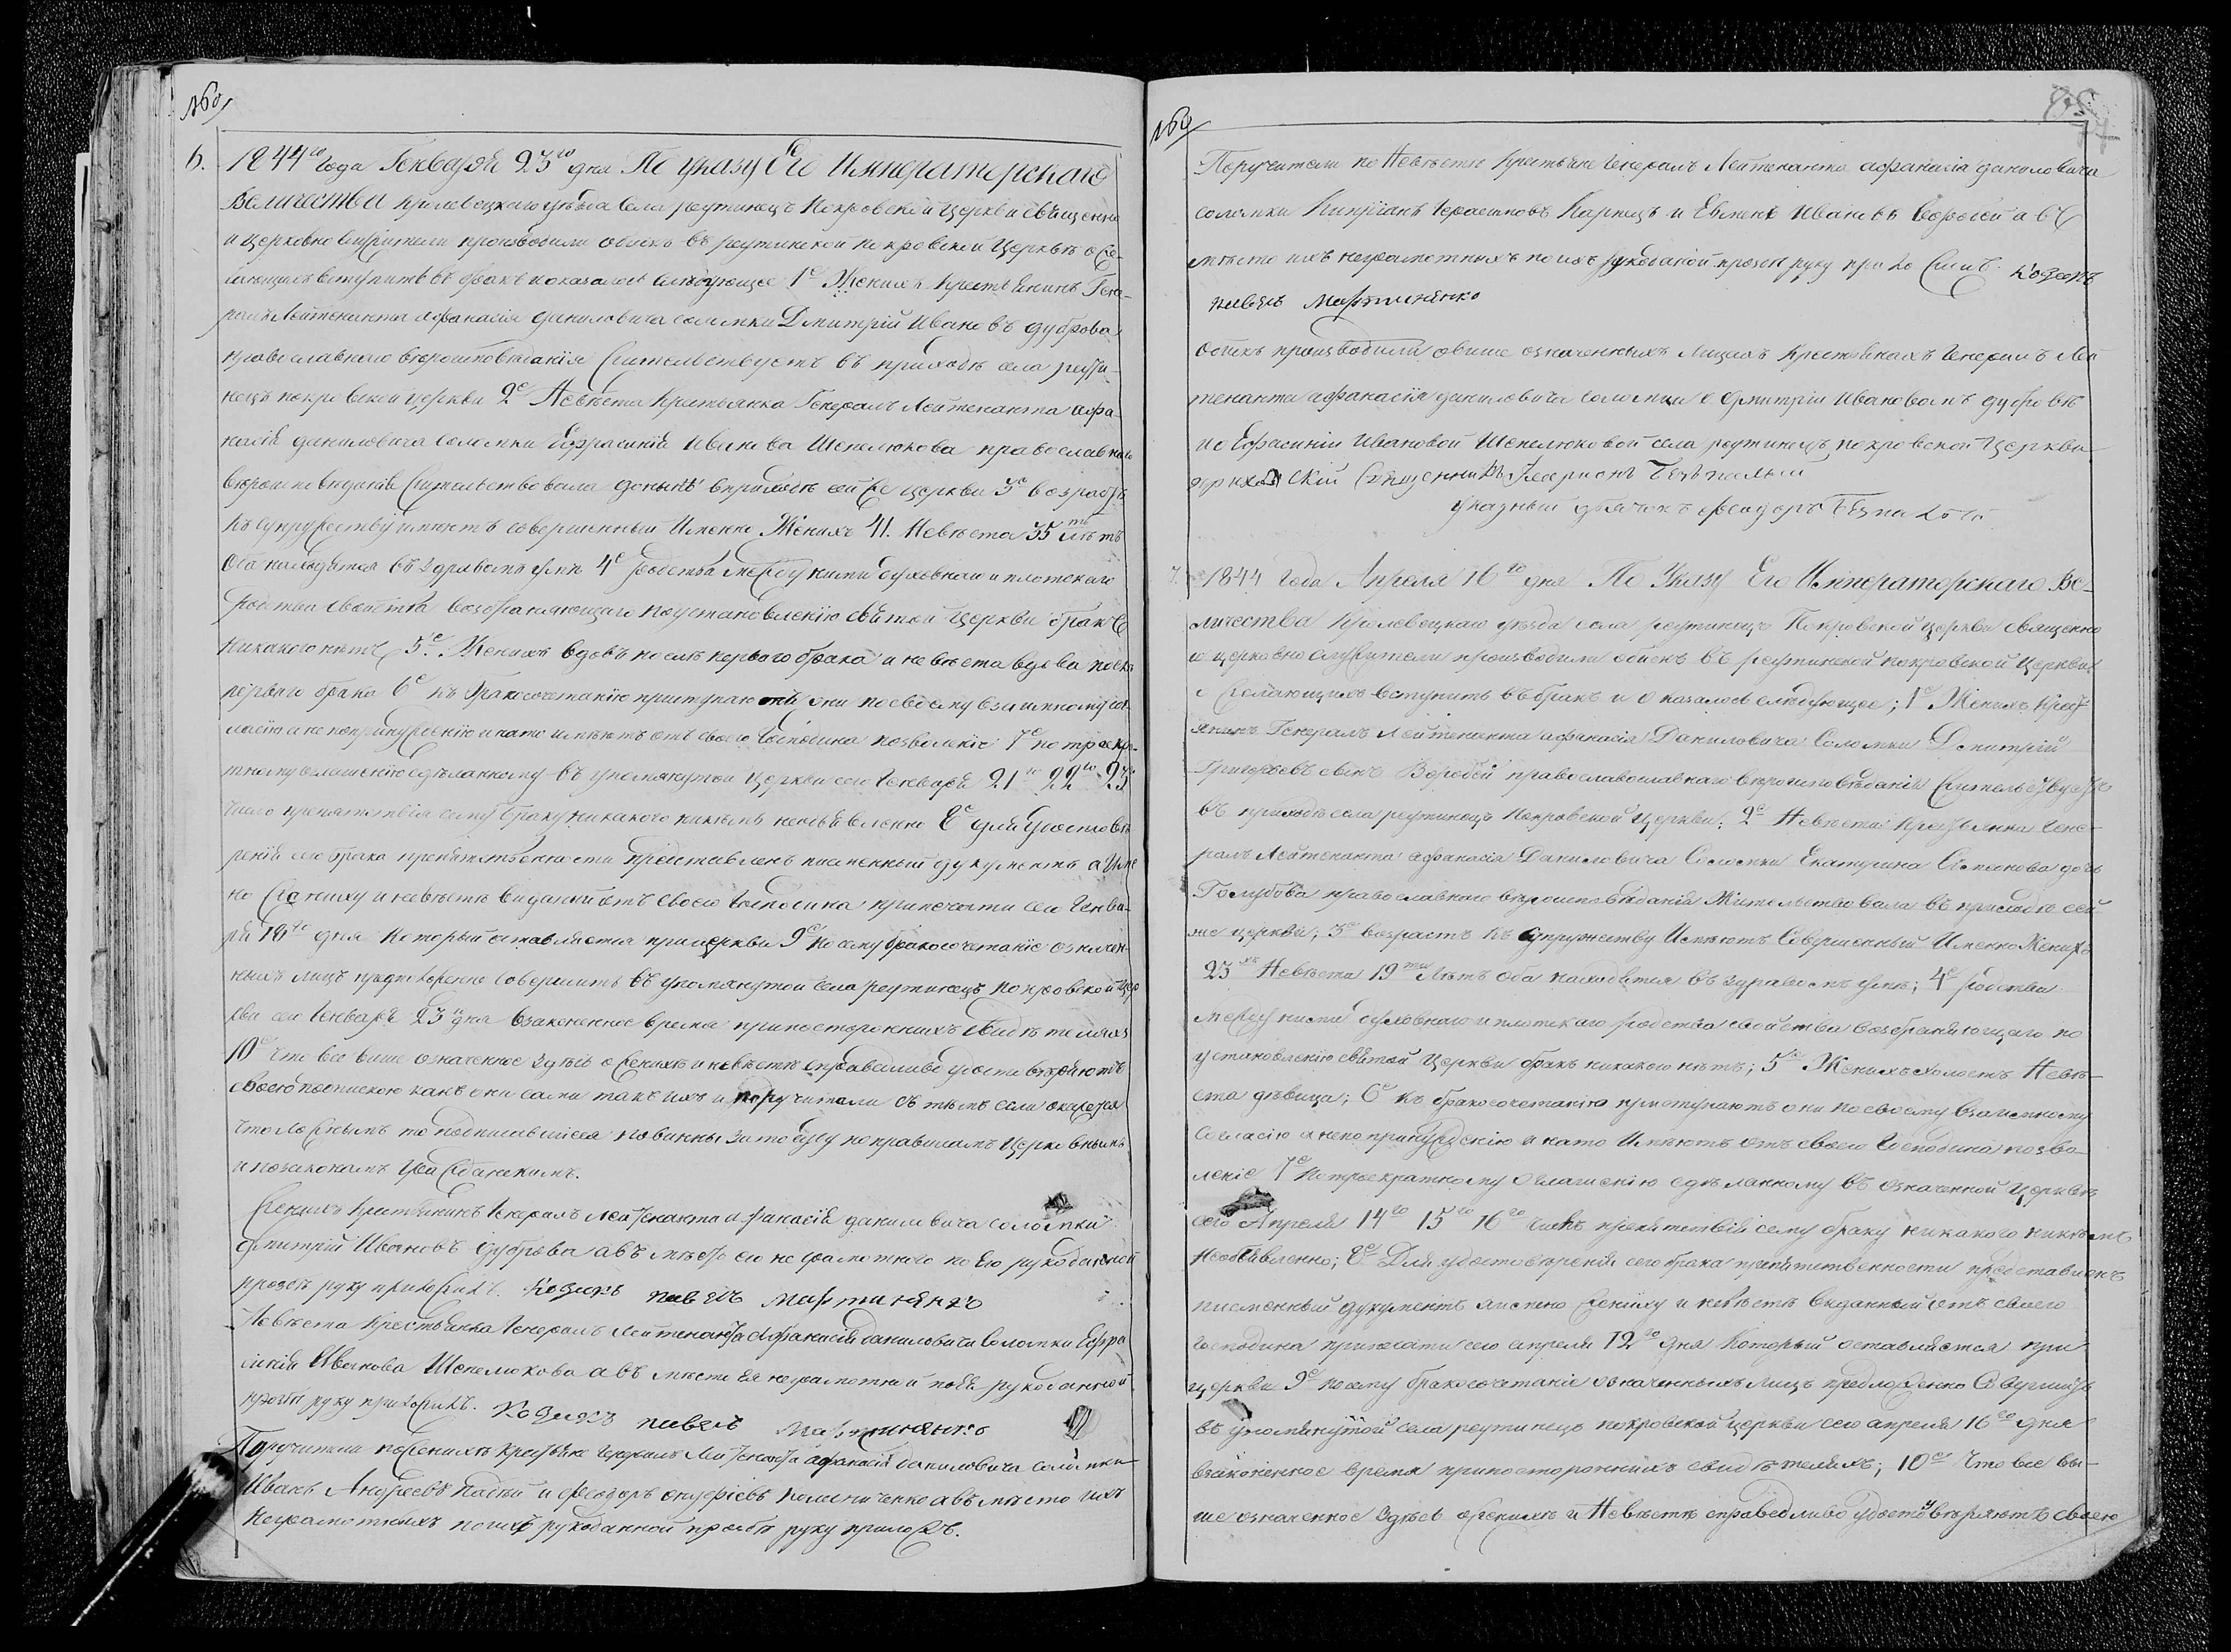 6. 1844го года Генваря 23го дня По указу Его Императорскаго
Величества Кролевецкаго уезда села реутинецъ Покровской Церкви священно
и церковно служители производили обискъ въ реутинской покровской Церквѣ о же-
лающихъ вступить въ бракъ и оказалось слѣдующее 1е Женихъ Крестьянинъ Гене-
ралъ Лейтенанта афанасія даниловича соломки Дмитрій Ивановъ дуброва
православнаго вероисповѣданія жительствуетъ въ приходѣ села реути-
нецъ покровской церкви 2е Невѣста Крестьянка Генералъ Лейтенанта афа
насія даниловича соломки Ефрасинія Иванова Шепелюкова православнаго
вѣроисповѣданія жительствовала донынѣ в приходѣ сей же церкви 3е возрастъ
къ супружеству имеютъ совершенный Именно Женихъ 41. Невѣста 35ть лѣтъ
Оба находятся въ здравомъ умѣ 4е родства между ними духовнаго и плотскаго
родства свойства возбраняющаго по установленію святой Церкви бракъ
никакого нѣтъ 5е. Женихъ вдовъ послѣ первого брака и невѣста вдова послѣ
перваго брака 6е къ бракосочетанію приступаютъ они по своему взаимному сог
ласію а не по принужденію и на то имѣютъ отъ своего Господина позволеніе 7е по троекра-
тному оглашенію сдѣланному въ упомянутой Церкви сего Генваря 21го 22го 23го
число препятствія сему браку никакого никѣмъ необъявленно 8е для удостовѣ
ренія сего брака препятственности представленъ писменный дукументъ а име
но жениху и невѣстѣ виданній отъ своего Господина при печати сего Генва-
ря 18го дня Который оставляется при церкви 9е По сему бракосочетаніе означен-
ныхъ лицъ предположенно совершить въ упомянутой села реутинецъ покровской Цер
кви сего Генваря 23го дня в законенное время при постороннихъ свидѣтеляхъ
10е Что все више означенное здѣсь о женихѣ и невѣстѣ справедливо удостовѣряютъ
своею подпискою какъ они сами такъ ихъ и поручители съ тѣмъ если окажется
что ложнымъ то подписавшіеся повинны за то суду по правиламъ Церковнымъ
и по законамъ Гражданскимъ.
Женихъ Крестьянинъ Генералъ Лейтенанта афанасія даниловича соломки
дмитрій Ивановъ дуброва а въ мѣсто его неграмотного по Его рукоданной
прозбѣ руку приложилъ. Козакъ павелъ Мартиненко
Невѣста Крестьянка Генералъ Лейтенанта Афанасія даниловича соломки Ефра
синія Иванова Шепелюкова а въ мѣсто Ея неграмотной по Ея рукоданной
прозбѣ руку приложилъ. Козакъ павелъ Мартиненко
Поручители по женихѣ Крестьяне Генералъ Лейтенанта афанасія даниловича соломки
Иванъ Андреевъ и Феодоръ а въ мѣсто ихъ
Неграмотныхъ по ихъ рукоданной прозбѣ руку приложъ.
Поручители по Невѣстѣ Крестьяне Генералъ Лейтенанта афанасія даниловича
соломки Кипріанъ Герасимовъ Карпецъ и Евмень Ивановъ а въ
мѣсто ихъ неграмотныхъ по ихъ рукоданой прозбѣ руку при Козакъ
павелъ Мартиненко
Обискъ производили о више означенныхъ лицахъ Крестьянахъ Генералъ Лей
тенанта афанасія даниловича соломки о дмитріи Ивановомъ дубровѣ
и о Ефрасиніи Ивановой Шепелюковой села реутинецъ покровской Церкви
приходскій Священникъ Иларионъ Безпалый
Указный дьячокъ Феодоръ
7. 1844 года Апреля 16го дня По Указу Его Императорскаго Ве-
личества Кролевецкаго уезда села реутинецъ Покровской Церкви священно
и церковно служители производили обискъ въ реутинской покровской Церквѣ
о желающихъ вступить въ бракъ и оказалось слѣдующее; 1е Женихъ Крест
янинъ Генералъ Лейтенанта афанасія Даниловича Соломки Дмитрій
Григорьевъ синъ Воробей православославнаго вѣроисповѣданія жительствуетъ
въ приходѣ села реутинецъ покровской Церкви; 2е Невѣста: Крестьянка Гене-
ралъ Лейтенанта афанасія Даниловича Соломки Екатерина дочь
Голубова православнаго вѣроисповѣданія Жительствовала въ приходѣ сей
же церкви; 3е возрастъ къ супружеству Имѣютъ Совершенный Именно Женихъ
23хъ Невѣста 19ти Лѣтъ оба находятся въ здравомъ умѣ; 4е родства
между ними духовнаго и плотскаго родства свойства возбраняющаго по
установленію святой Церкви бракъ никакого нѣтъ; 5е Женихъ холостъ Невѣ-
ста дѣвица; 6е къ бракосочетанію приступаютъ они по своему взаимному
согласію а не по принужденію и на то имѣютъ отъ своего Господина позво-
леніе 7е По троекратному оглашенію сдѣланному въ означенной Церквѣ
сего Апреля 14го 15го 16го числъ препятствія сему браку никакого никѣмъ
необъявленно; 8е Для удостовѣренія сего брака препятственности представленъ
писменный дукументъ имено жениху и невѣстѣ виданный отъ своего
господина при печати сего апреля 12го дня Который оставляется при
церкви 9е По сему бракосочетаніе означенныхъ лицъ предположенно Совершить
въ упомянутой села реутинецъ покровской церкви сего апреля 16го дня
в законенное время при постороннихъ свидѣтеляхъ; 10е Что все ви-
ше означенное здѣсь о женихѣ и Невѣстѣ справедливо удостовѣряютъ своею